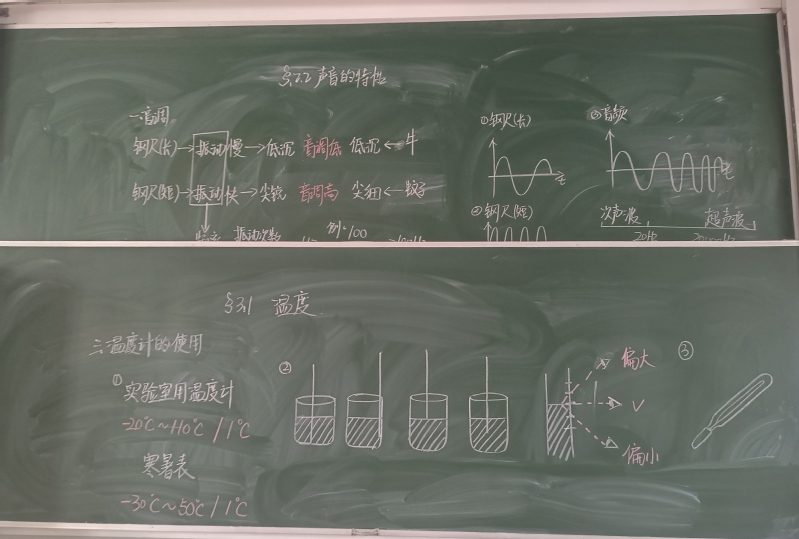 §2.2 声音的特性
一.音调
钢尺(长)→振动慢→低沉 音调低 低沉←牛
钢尺(短)→振动快→尖锐 音调高 尖细←蚊子
振动次数 例:100
①钢尺(长)
t
②钢尺(短)
③音频
t
次声波 超声波
20Hz 20000Hz
§3.1 温度
三.温度计的使用
① 实验室用温度计
-20℃~110℃ / 1℃
寒暑表
-30℃~50℃ / 1℃
②
偏大
√
偏小
③